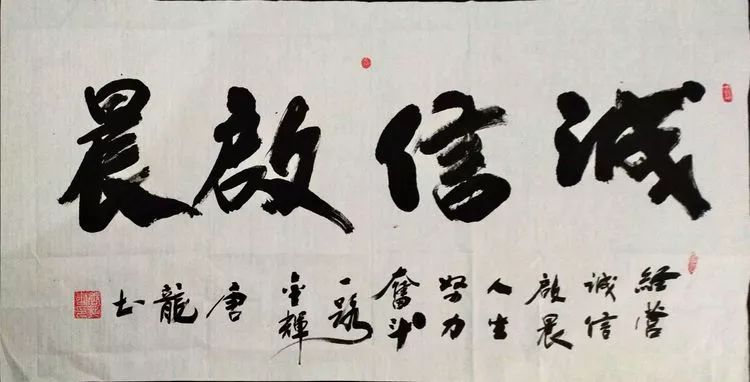 誠信啟晨
經營
誠信
啟晨
人生
努力
奮斗
一路
金輝
唐
龍
书